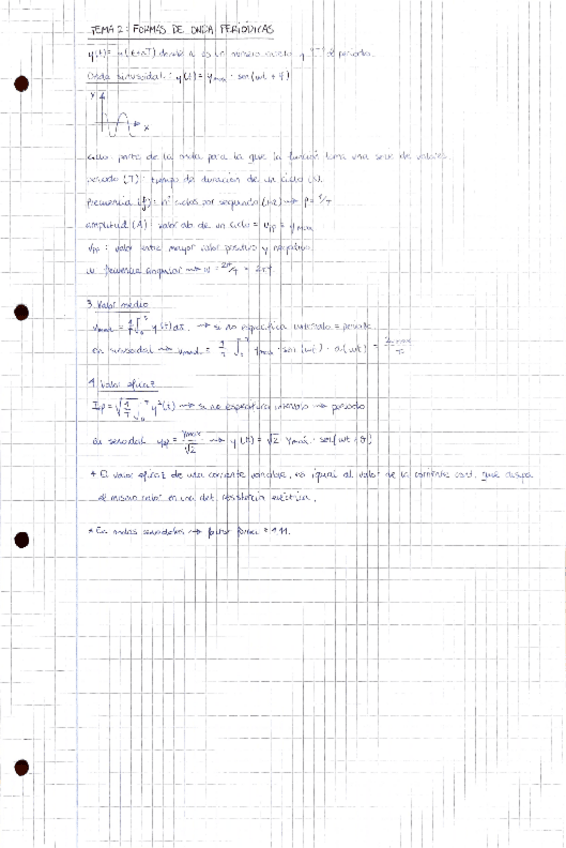 TEMA 2: FORMAS DE ONDA PERIÓDICAS
y(t) = y(t+nT) donde n es un número entero y "T" el periodo.
Onda sinusoidal: y(t) = ymax · sen(wt + φ)
y
x
ciclo: parte de la onda para la que la función toma una serie de valores.
periodo (T): tiempo de duración de un ciclo (s).
frecuencia (f): nº ciclos por segundo (Hz) → f = 1/T
amplitud (A): valor de un ciclo = ymax
Vpp: valor entre mayor valor positivo y negativo.
w frecuencia angular → w = 2π/T = 2πf.
3. Valor medio
Ymed = 1/T ∫ y(t) dt. → si no especifica intervalo = periodo.
en senoidal → Ymed = ymax · sen(wt) · d(wt) =
4. Valor eficaz
y²(t) → si no especifica intervalo → periodo
en senoidal yef = ymax/√2 → y(t) = √2 · sen(wt + θ)
* El valor eficaz de una corriente variable, es igual al valor de la corriente cont. que disipa
el mismo calor en una det. resistencia eléctrica.
* En ondas senoidales → factor forma = 1'11.